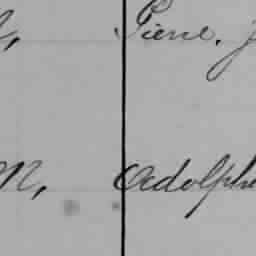 Pierre, J
M, Adolphe